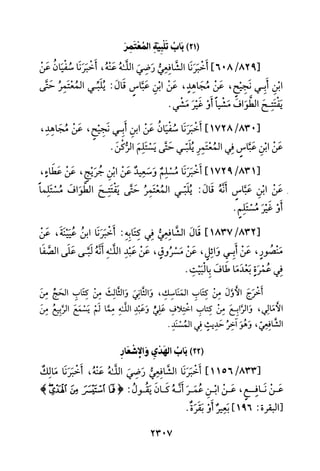 (٢١) بَابُ تَلْبِيَةِ الْمُعْتَمِرِ
[٨٢٩/ ٦٠٨] أَخْبَرَنَا الشَّافِعِيُّ رَضِيَ اللهُ عَنْهُ، أَخْبَرَنَا سُفْيَانُ عَنْ
ابْنِ أَبِي نَجِيْحٍ، عَنْ مُجَاهِدٍ، عَنْ ابْنِ عَبَّاسٍ قَالَ: يُلَبِّي الْمُعْتَمِرُ حَتَّى
يَفْتَتِحَ الطَّوَافَ مَشْياً أَوْ غَيْرَ مَشْي.
[٨٣٠/ ١٧٢٨] أَخْبَرَنَا سُفْيَانُ عَنْ ابنِ أَبِي نَجِيْحٍ، عَنْ مُجَاهِدٍ،
عَنْ ابْنِ عَبَّاسٍ فِي الْمُعْتَمِرِ يُلَبِّي حَتَّى يَسْتَلِمَ الرُّكْنَ.
[٨٣١/ ١٧٢٩] أَخْبَرَنَا مُسْلِمٌ وَسَعِيدٌ عَنْ ابْنِ جُرَيْجٍ، عَنْ عَطَاءٍ،
عَنْ ابْنِ عَبَّاسٍ أَنَّهُ قَالَ: يُلَبِّي الْمُعْتَمِرُ حَتَّى يَفْتَتِحَ الطَّوَافَ مُسْتَلِماً
أَوْ غَيْرَ مُسْتَلِمٍ.
[٨٣٢/ ١٨٣٧] قَالَ الشَّافِعِيُّ فِي كِتَابِهِ: أَخْبَرَنَا ابنُ عُيَيْنَةَ، عَنْ
مَنْصُورٍ، عَنْ أَبِي وَائِلٍ، عَنْ مَسْرُوقٍ، عَنْ عَبْدِ اللَّهِ أَنَّهُ لَبَّى عَلَى الصَّفَا
فِي عُمْرَةٍ بَعْدَمَا طَافَ بِالْبَيْتِ.
أَخْرَجَ الأَوَّلَ مِنْ كِتَابِ الْمَنَاسِكِ، وَالثَّانِيَ وَالثَّالِثَ مِنْ كِتَابِ الحَجِّ مِنَ
الأَمَالِي، وَالرَّابِعَ مِنْ كِتابِ اخْتِلافِ عَلِيٍّ وَعَبْدِ اللَّهِ مِمَّا لَمْ يَسْمَعْ الرَّبِيعُ مِنَ
الشَّافِعِيِّ، وَهُوَ آخِرُ حَدِيثٍ فِي الْمُسْنَدِ.
(٢٢) بَابُ الهَدْيِ وَالإِشْعَارِ
[٨٣٣/ ١١٥٦] أَخْبَرَنَا الشَّافِعِيُّ رَضِيَ اللهُ عَنْهُ، أَخْبَرَنَا مَالِكٌ
عَنْ نَافِعٍ، عَنْ ابْنِ عُمَرَ أَنَّهُ كَانَ يَقُولُ: ﴿ فَمَا اسْتَيْسَرَ مِنَ الْهَدْيِ ﴾
[البقرة: ١٩٦] بَعِيْرٌ أَوْ بَقَرَةٌ.
٢٣٠٧